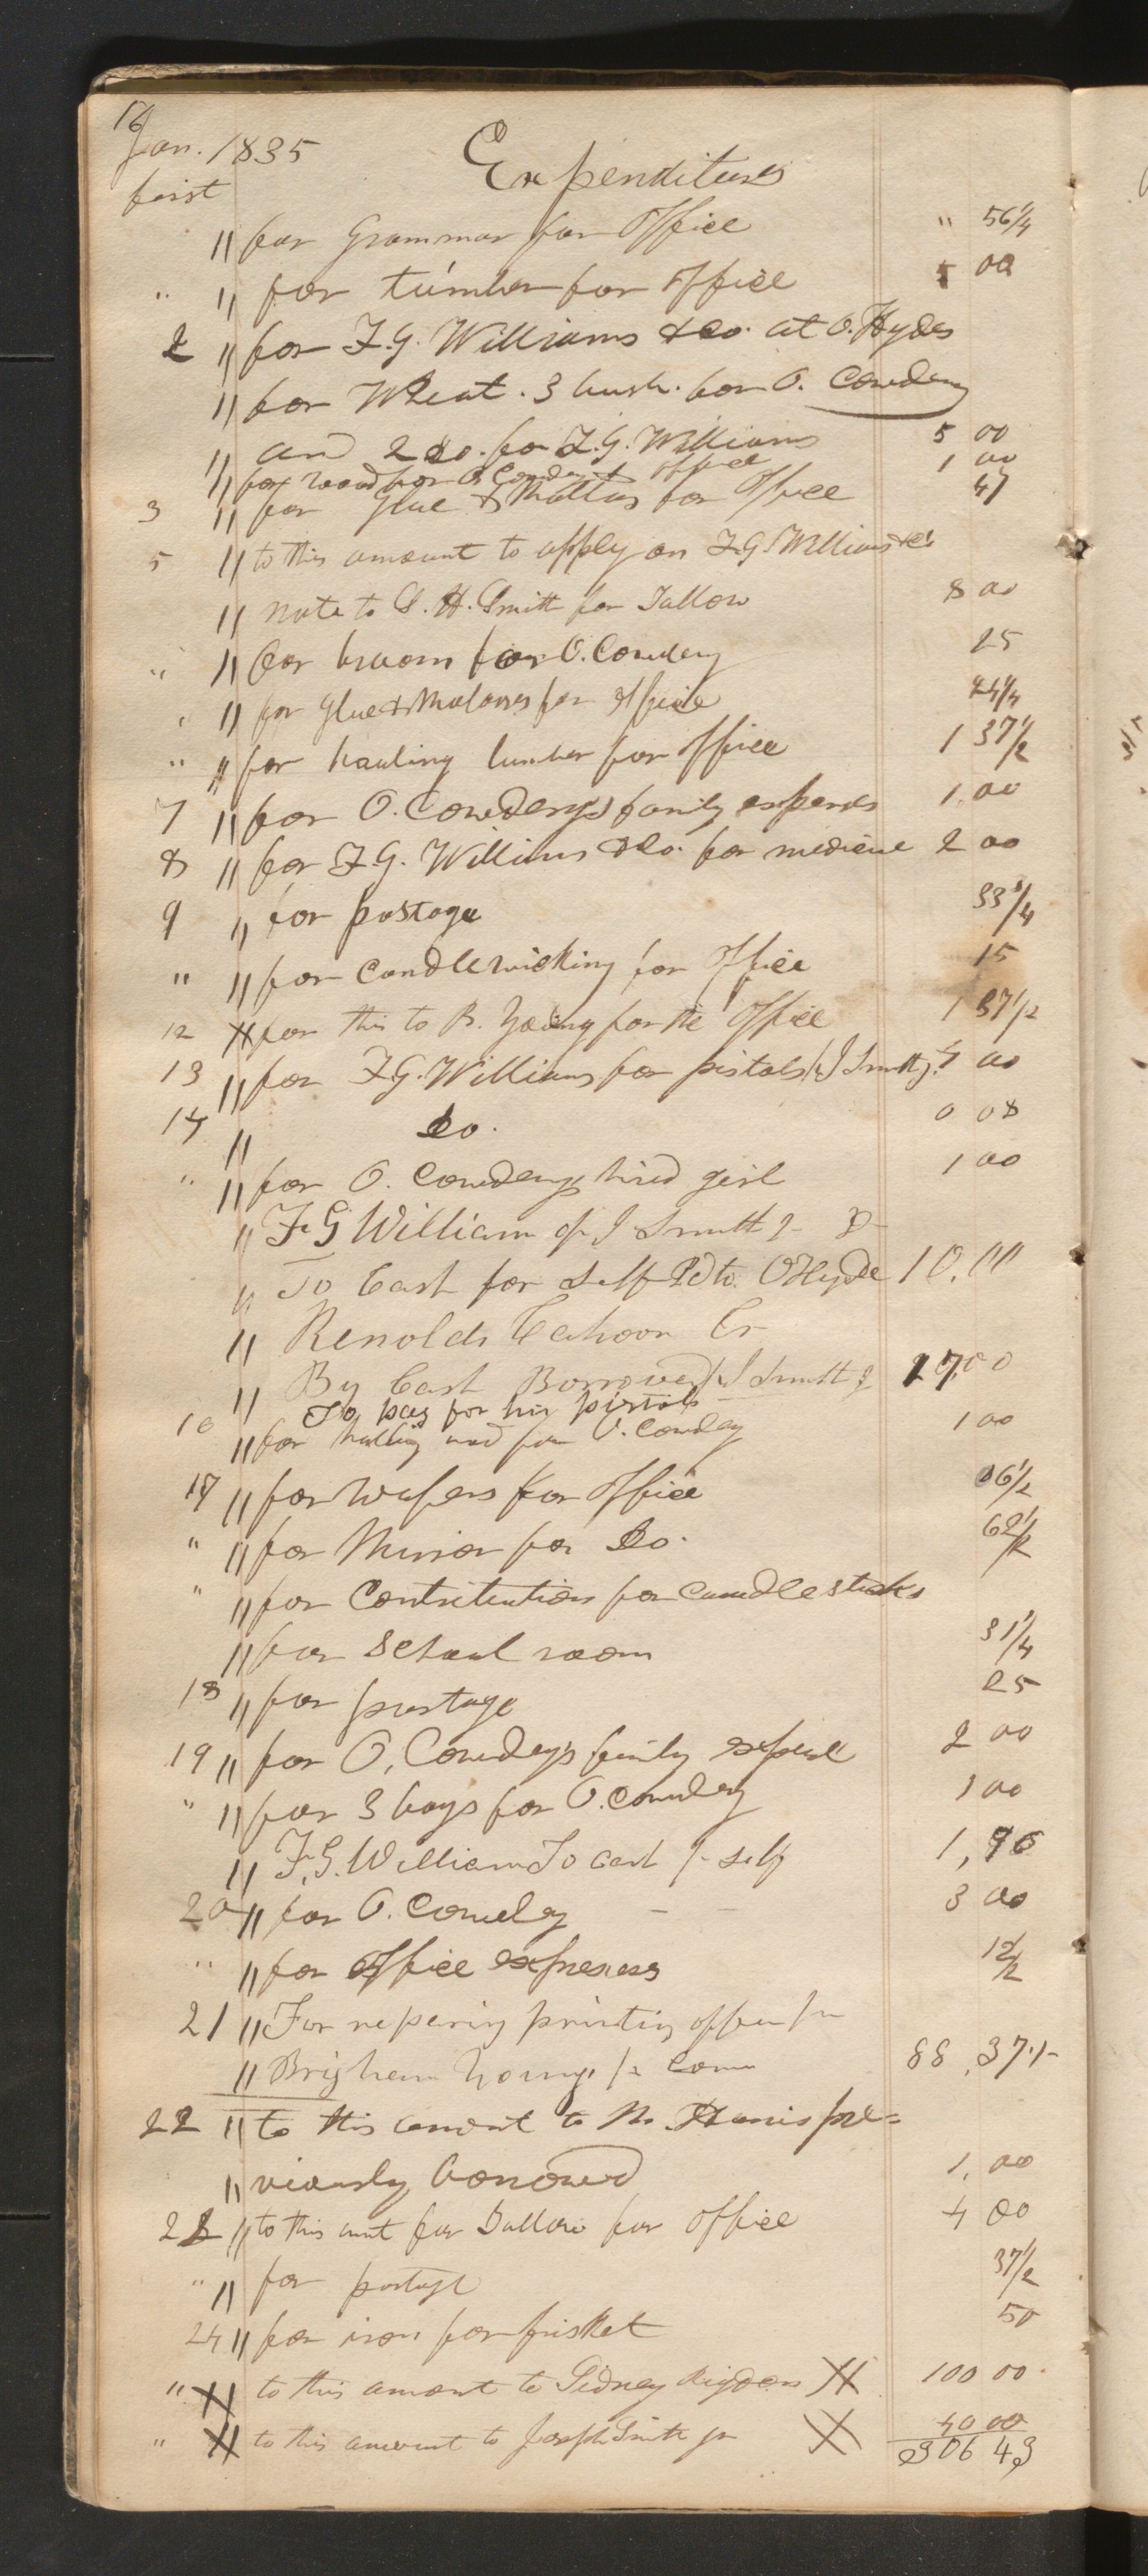 16
Jan. 1835 Expenditures
first
" for Grammar for Office " 56 1/4
" " for lumber for Office 5 00
2 " for F.G. Williams & co. at O. Hydes
" for Wheat. 3 bush. for O. Cowdery
" and 2 do. for F.G. Williams 5 00
" for wood for O Cowdery & office 1 00
3 " for Glue & Mollas for Office 47
5 " to this amount to apply on F.G. Williams & co
" note to S. H. Smith for Tallow 8 00
" " for broom for O. Cowdery 25
" " for Glue & Molasses for office
" " for hauling lumber for Office 1 37 1/2
7 " for O. Cowderys family expenses 1.00
8 " for F.G. Williams & Co. for medicine 2 00
9 " for postage 33 3/4
" " for Candlewicking for Office 15
12 " for this to B. Young for the Office 1 37 1/2
13 " for F.G. Williams for pistols (J Smith j. 00
14 " Do. 0 08
" " for O. Cowderys hired girl 1 00
" F. G William fr J Smith Jr Dr
" To Cash for Self Pd to. O Hyde 10.00
" Renolds Cahoon Cr
" By Cash Borrowed J Smith Jr 17.00
To pay for his pistols
16 " for halling wood for O. Cowdery 1 00
17 " for wafers for Office 06 1/2
" " for Mirror for Do. 62 1/2
" " for Contribution for candle sticks
" for School room 31 1/4
18 " for postage 25
19 " for O. Cowderys family expense 2 00
" " for 3 bags for O. Cowdery 1 00
" F. G. William To cash fr self 1,96
20 " for O. Cowdery — — 3 00
" " for Office expenses 12 1/2
21 " For reparing printing office fr
" Brigham Young fr Comm 88.37 1/2
22 " to this amount to M. Harris pre=
" viously borrowed 1.00
23 " to this amt for Tallow for Office 4 00
" " for postage 37 1/2
24 " for iron for frisket 50
" X to this amount to Sidney Rigdon X 100 00
" X to this amount to Joseph Smith jr X 40 00
306 43